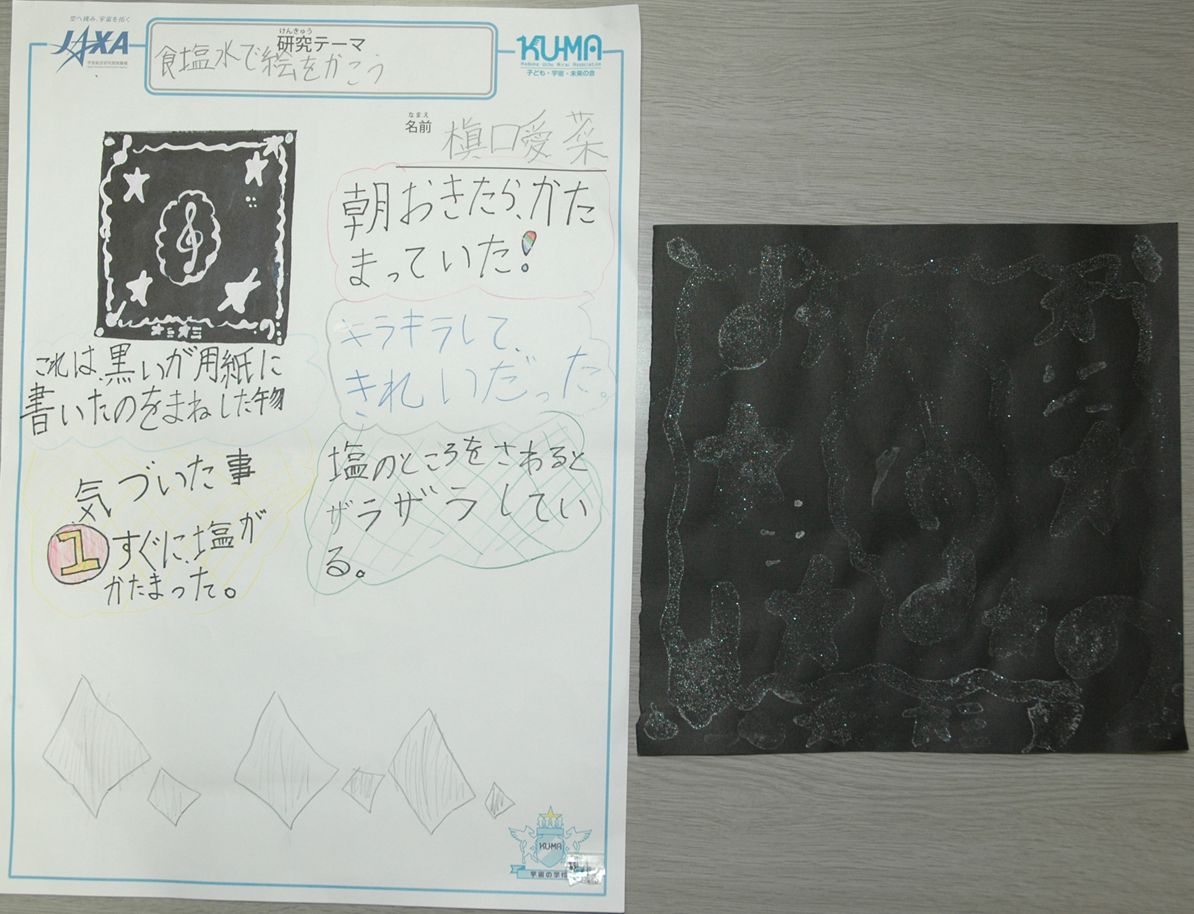 空へ挑み、宇宙を拓く
JAXA
けんきゅう
研究テーマ
食塩水で絵をかこう
KU-MA
子ども・宇宙・未来の会
なまえ
名前
槇口愛菜
朝おきたら、かた
まっていた!
これは黒いが用紙に
書いたのをまねした物
キラキラして、
きれいだった。
気づいた事
1 すぐに、塩が
かたまった。
塩のところをさわると
ザラザラしてい
る。
KU-MA
宇宙の学校